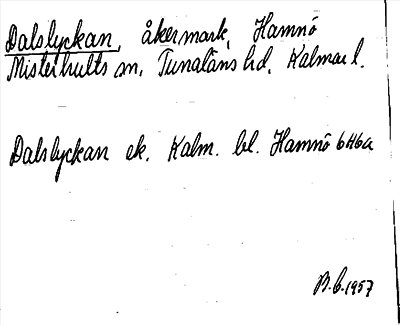 Dalslyckan, åkermark, Hamnö
Misterhults sn, Tunaläns hd, Kalmar l.
Dalslyckan ek. Kalm. bl. Hamnö 6H6a
B.G. 1957